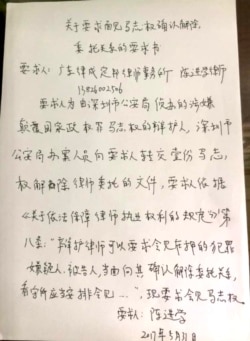 关于要求会见马志权确认解除
委托关系的要求书
要求人: 广东律成定邦律师事务所 陈进学律师
13826002506
要求人为由深圳市公安局侦办的涉嫌
颠覆国家政权马志权的辩护人, 深圳市
公安局办案人员向要求人转交壹份马志
权解除律师委托的文件, 要求人依据
《关于依法保障律师执业权利的规定》第
八条: "辩护律师可以要求会见在押的犯罪
嫌疑人、被告人, 当面向其确认解除委托关系,
看守所应当安排会见…", 现要求会见马志权
要求人: 陈进学
2017年5月31日